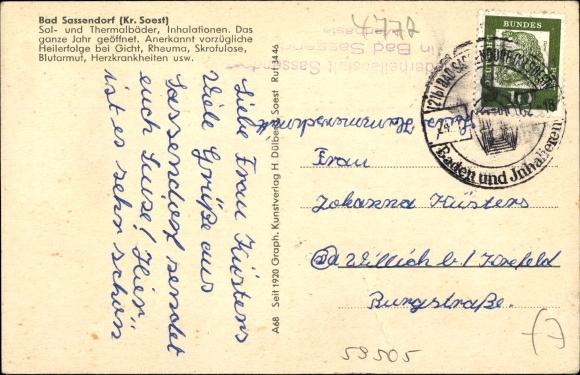 Bad Sassendorf (Kr. Soest)
Sol- und Thermalbäder, Inhalationen. Das
ganze Jahr geöffnet. Anerkannt vorzügliche
Heilerfolge bei Gicht, Rheuma, Skrofulose,
Blutarmut, Herzkrankheiten usw.
4772
in Bad Sassendorf
DEUTSCHE BUNDESPOST
10
Baden und Inhalieren
Liebe Frau Küsters
Viele Grüße aus
Sassendorf sendet
euch Luise! Hier
ist es sehr schön
A68 Seit 1920 Graph. Kunstverlag H Dülberg Soest Ruf 3446
Frau
Johanna Küsters
Willich b/ Krefeld
Burgstraße.
59505